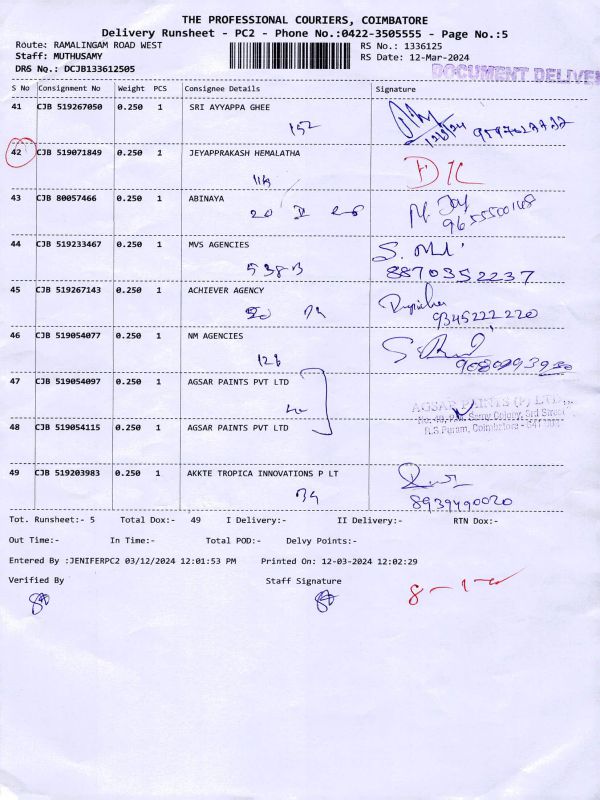 THE PROFESSIONAL COURIERS, COIMBATORE
Delivery Runsheet - PC2 - Phone No.:0422-3505555 - Page No.:5
Route: RAMALINGAM ROAD WEST
RS No.: 1336125
Staff: MUTHUSAMY
RS Date: 12-Mar-2024
DRS No.: DCJB133612505
DOCUMENT DELIVE
S No Consignment No Weight PCS Consignee Details Signature
41 CJB 519267050 0.250 1 SRI AYYAPPA GHEE
152
12/3/24
42 CJB 519071849 0.250 1 JEYAPPRAKASH HEMALATHA
43 CJB 80057466 0.250 1 ABINAYA
20
44 CJB 519233467 0.250 1 MVS AGENCIES
538 B
8870352237
45 CJB 519267143 0.250 1 ACHIEVER AGENCY
9345222220
46 CJB 519054077 0.250 1 NM AGENCIES
126
47 CJB 519054097 0.250 1 AGSAR PAINTS PVT LTD
AGSAR PAINTS (P) LTD
Samy Colony, 3rd Street
48 CJB 519054115 0.250 1 AGSAR PAINTS PVT LTD
R.S.Puram, Coimbatore
49 CJB 519203983 0.250 1 AKKTE TROPICA INNOVATIONS P LT
8939490020
Tot. Runsheet:- 5 Total Dox:- 49 I Delivery:- II Delivery:- RTN Dox:-
Out Time:- In Time:- Total POD:- Delvy Points:-
Entered By :JENIFERPC2 03/12/2024 12:01:53 PM Printed On: 12-03-2024 12:02:29
Verified By Staff Signature